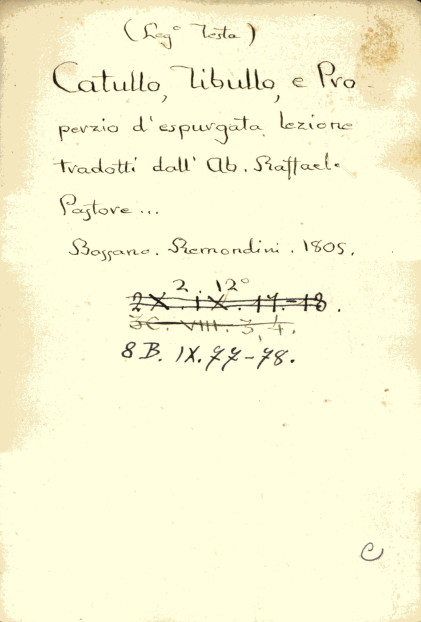 (Leg° Testa)
Catullo, Tibullo, e Pro-
perzio d'espurgata lezione
tradotti dall' Ab. Raffaele
Pastore...
Bassano. Remondini. 1805.
2. 12°
2X. IX. 17.-18.
3C. VIII. 3, 4.
8 B. IX. 77-78.
C